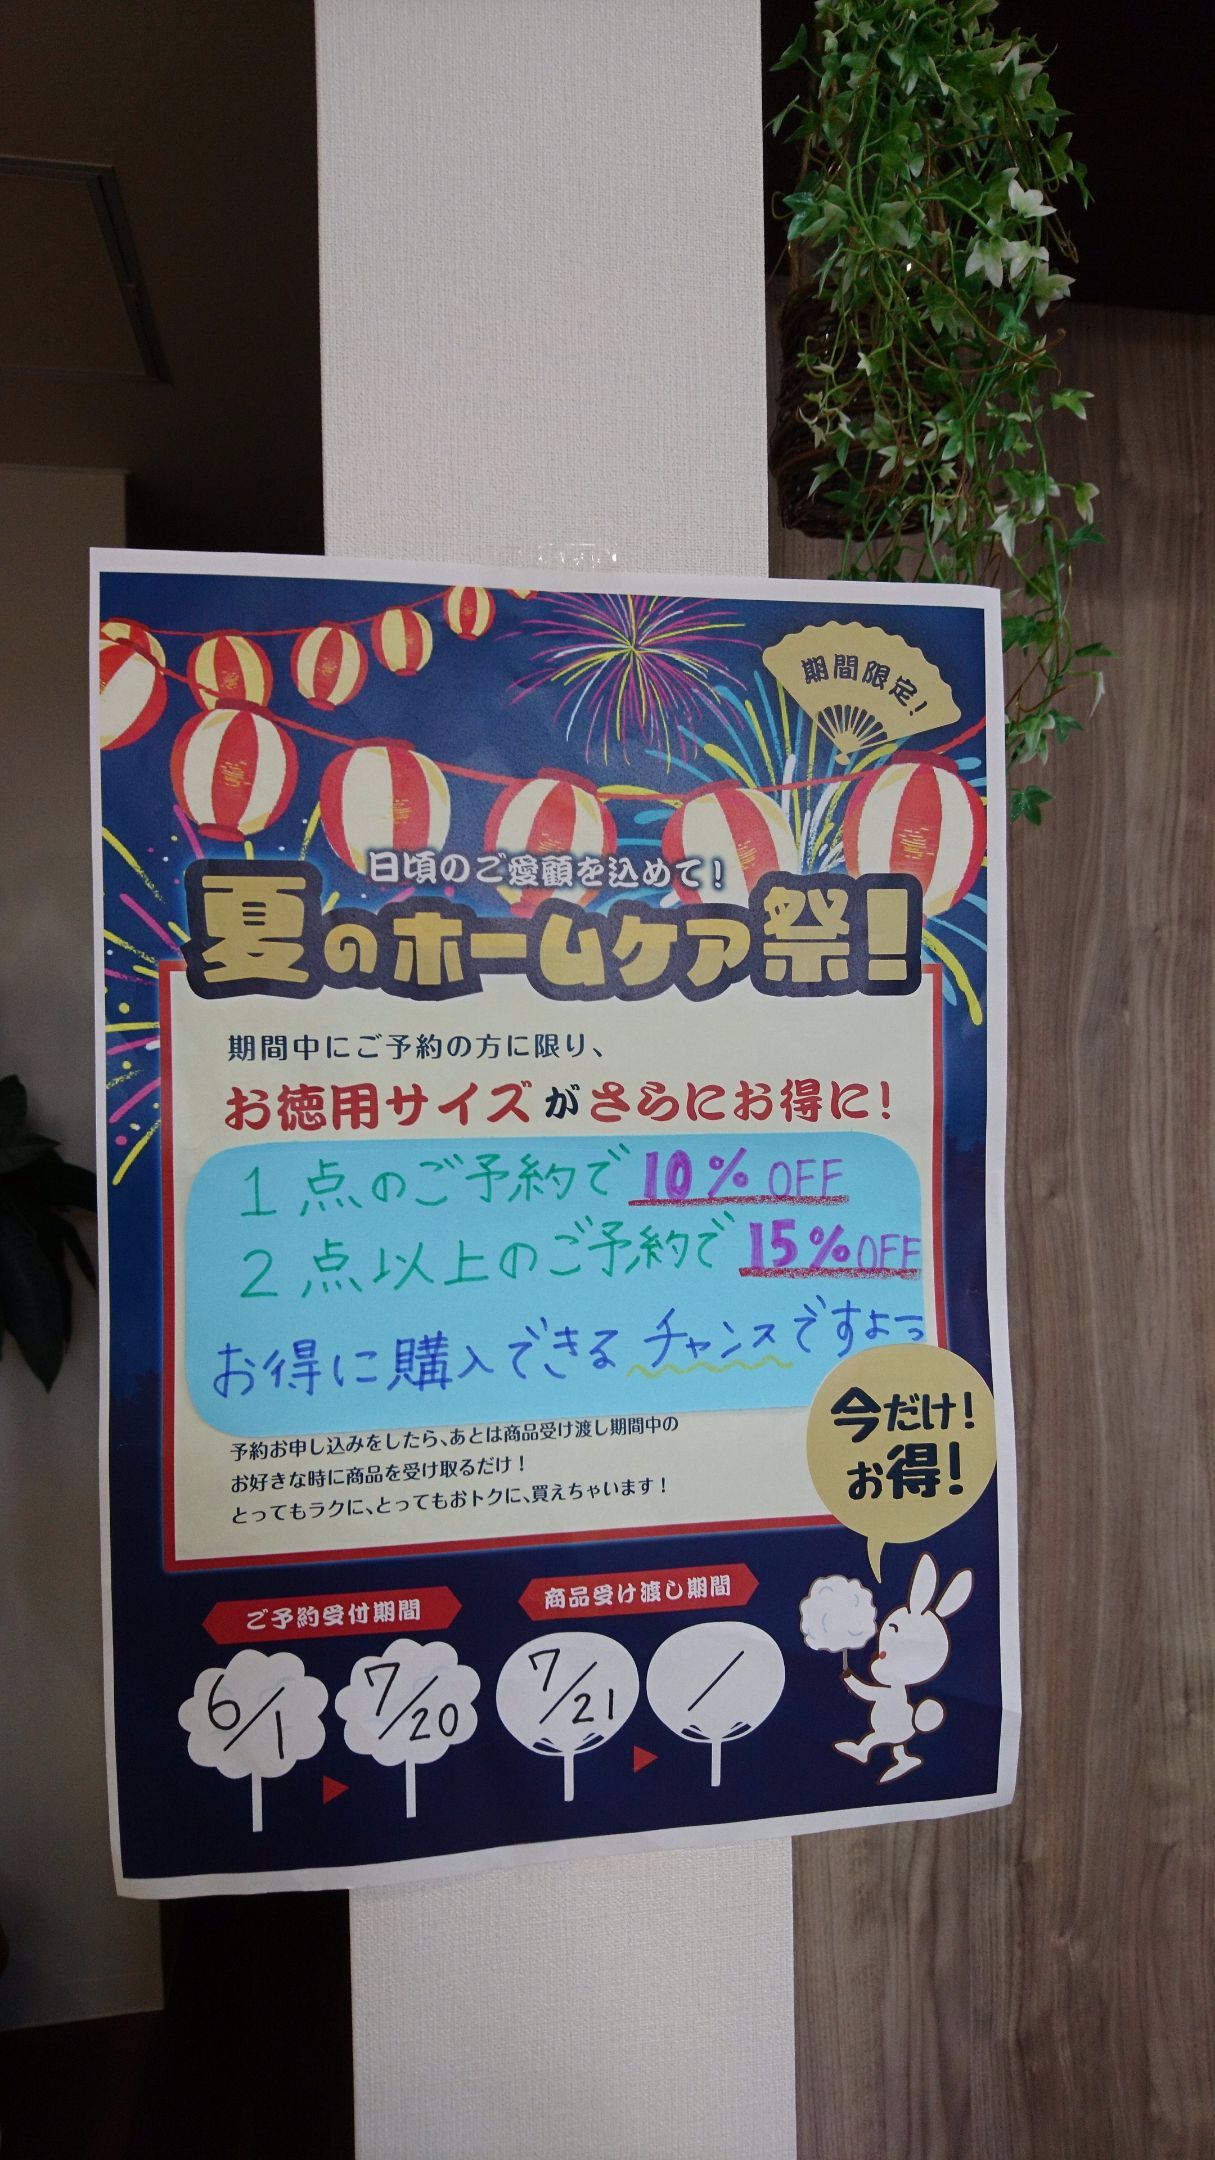 期間限定!
日頃のご愛顧を込めて!
夏のホームケア祭!
期間中にご予約の方に限り、
お徳用サイズがさらにお得に!
1点のご予約で10%OFF
2点以上のご予約で15%OFF
お得に購入できるチャンスですよっ
予約お申し込みをしたら、あとは商品受け渡し期間中の
お好きな時に商品を受け取るだけ!
とってもラクに、とってもおトクに、買えちゃいます!
今だけ!
お得!
ご予約受付期間
6/1 ▶ 7/20
商品受け渡し期間
7/21 ▶ /